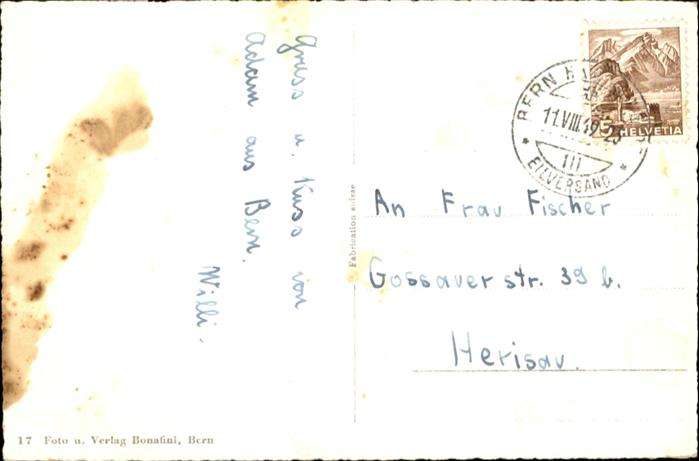 Gruss u. Kuss von
Adam aus Bern.
Willi.
BERN
11.VIII.49
III
EILVERSAND
5
HELVETIA
An Frau Fischer
Gossauerstr. 39 b.
Herisau.
Fabrication suisse
17 Foto u. Verlag Bonafini, Bern